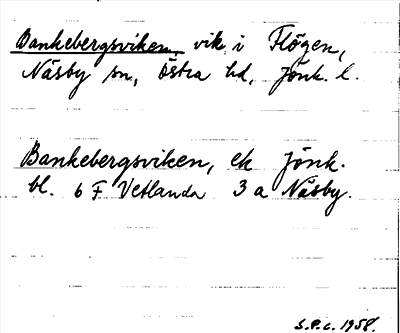 Bankebergsviken, vik i Flögen,
Näsby sn, Östra hd, Jönk. l.
Bankebergsviken, ek Jönk.
bl. 6 F Vetlanda 3 a Näsby.
S.P.c. 1958.